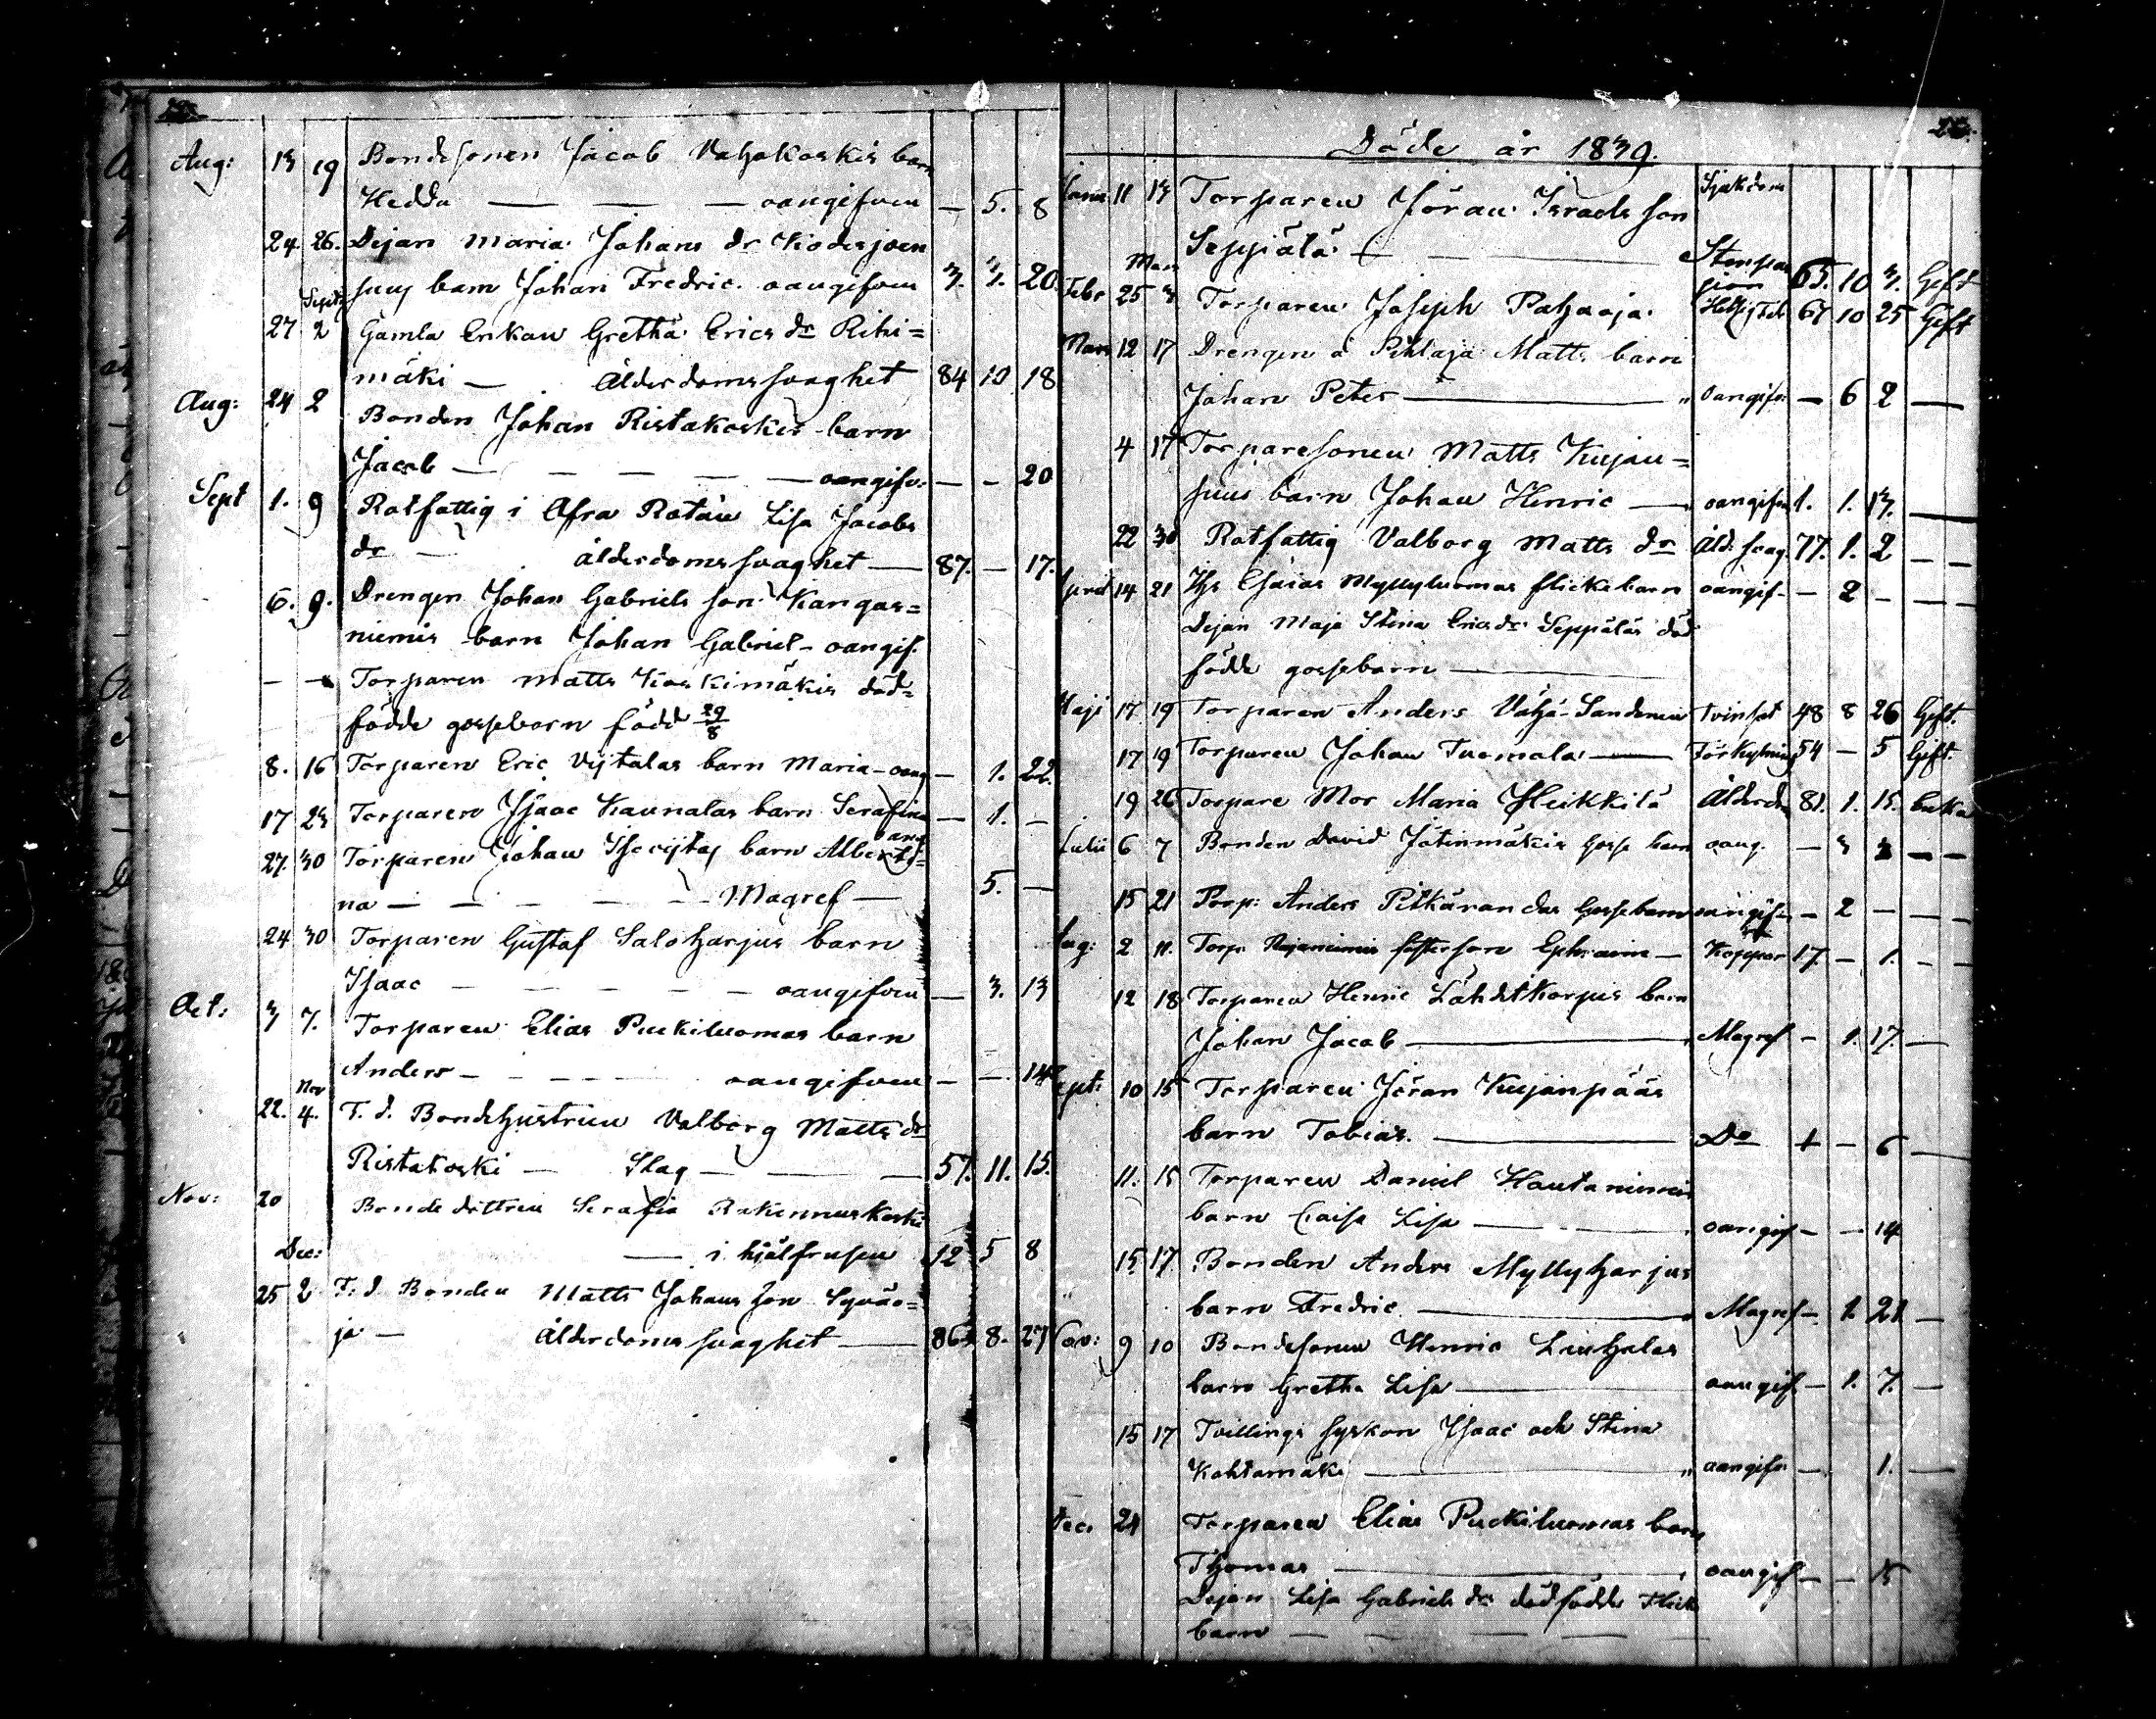 Aug: 13 19 Bondesonen Jacob Vahakoskis barn
Hedda — — — oangifven — 5. 8
24. 26. Dejan Maria Johans dr
barn Johan Fredric. oangifven 3. 3. 20.
Sept:
27 2 Gamla Enkan Gretha Erics dr Rihi=
mäki — Ålderdomssvaghet 84 10 18
Aug: 24 2 Bonden Johan Ristakoskis barn
Jacob — — — — — oangifv: — — 20
Sept 1. 9 Rotfattig i Afra Rotan Lisa Jacobs
dr — Ålderdomssvaghet — 87. — 17.
6. 9. Drengen Johan Gabriels son Kangas=
niemis barn Johan Gabriel — oangif.
— — Torparen Matts Koskimäkis död=
födde gossebarn född 29/8
8. 16 Torparen Eric Vijtalas barn Maria — oang — 1. 22.
17 23 Torparen Isaac Kaunalas barn Serafina — 1. —
27. 30 Torparen Johan barn Alberti=
na — — — — — Magref — 5. —
24 30 Torparen Gustaf Saloharjus barn
Isaac — — — — — oangifven — 3. 13
Oct: 3 7. Torparen Elias Puckiluomas barn
Anders — — — — oangifven — — 14
Nov
22. 4. F. d. Bondehustrun Valborg Matts dr
Ristakoski — Slag — — 57. 11. 15.
Nov: 20 Bonde dottren Serafia Rakennuskoski
Dec: — i hjälfrusen 12 5 8
25 2 F. d. Bonden Matts Johans son Syväo=
ja — Ålderdomssvaghet — 86. 8. 27
Döde år 1839.
Sjukdom
Janu 11 13 Torparen Jöran Israels son
Seppälä — Stenpas
sion 65. 10 3. Gift
Mars
Febr 25 3 Torparen Joseph Pahaoja 67 10 25 Gift
Mars 12 17 Drengen å Pihlaja Matts barn
Johan Peter — " oangifv: — 6 2 —
4 17 Torparesonen Matts Kujan=
suus barn Johan Henric — oangifven 1. 1. 13. —
22 30 Rotfattig Valborg Matts dr Åld: svag. 77. 1. 2 — —
April 14 21 Hgs Esaias Myllyluomas flickebarn oangif — — 2 — — —
Dejan Maja Stina Erics dr Seppäläs död
födde gossebarn —
Maji 17 19 Torparen Anders Vähä-Sandenen Tvinsot 48 8 26 Gift.
17 19 Torparen Johan Tuomala — Förkylning 54 — 5 Gift.
19 26 Torpare Mor Maria Heikkilä Ålderdm 81. 1. 15. Enka
Julii 6 7 Bonden David Jätinmäkis gosse barn oang. — 3 3 — —
15 21 Torp: Anders Pitkärandas gossebarn oangif — — 2 — — —
Aug: 2 11. Torp: Rajaniemis fosterson Ephraim — Koppor 17. — 1. — —
12 18 Torparen Henric Lähdetkorpus barn
Johan Jacob — Magref — 1. 17. —
Sept: 10 15 Torparen Jöran Kujanpääs
barn Tobias. — Do 1 — 6 —
11. 15 Torparen Daniel Hautaniemis
barn Caisa Lisa — oangif — — 14
15. 17 Bonden Anders Myllyharjus
barn Fredric — Magref — 1. 21 —
Nov: 9 10 Bondesonen Henric Liuhalas
barn Gretha Lisa — oangif — 1. 7. —
15 17 Tvillings syskon Isaac och Stina
Kohtamäki — " oangifv: — 1. —
Dec. 24 Torparen Elias Puckiluomas barn
Thomas — oangif — — 15
Dejan Lisa Gabriels dr dödfödde Flick
barn — — — — —